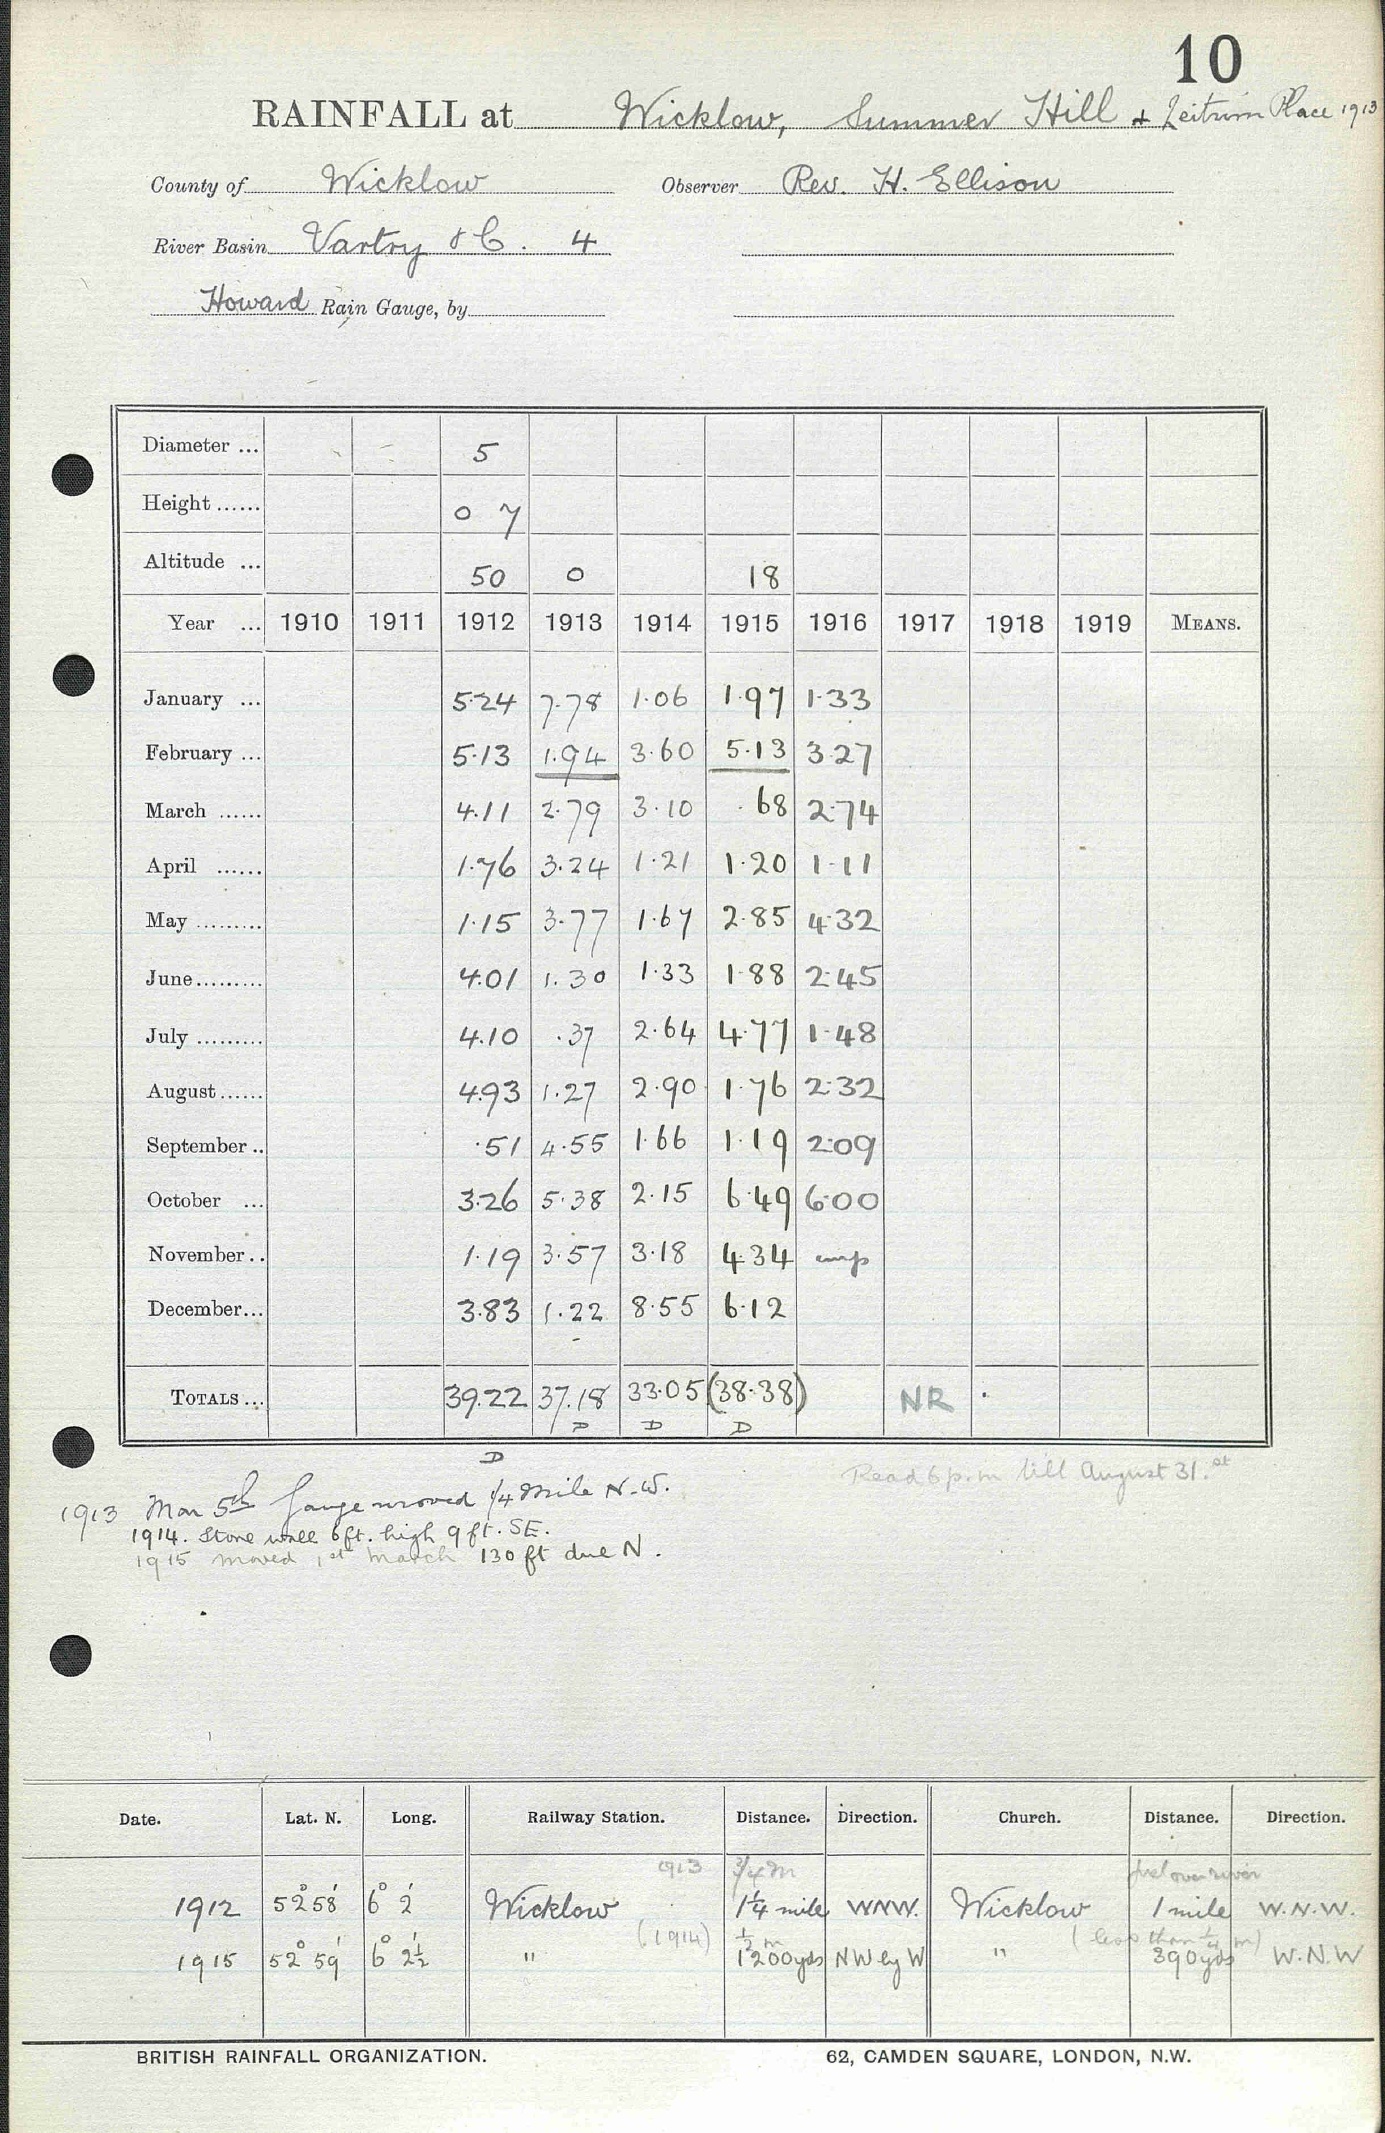 10
RAINFALL at Wicklow, Summer Hill & Leitrim Place 1913
County of Wicklow Observer Rev. H. Ellison
River Basin Vartry &C. 4
Howard Rain Gauge, by
Diameter ... 5
Height ...... 0 7
Altitude ... 50 0 18
Year ... 1910 1911 1912 1913 1914 1915 1916 1917 1918 1919 MEANS.
January ... 5.24 7.78 1.06 1.97 1.33
February ... 5.13 1.94 3.60 5.13 3.27
March ...... 4.11 2.79 3.10 .68 2.74
April ...... 1.76 3.24 1.21 1.20 1.11
May ......... 1.15 3.77 1.67 2.85 4.32
June......... 4.01 1.30 1.33 1.88 2.45
July ......... 4.10 .37 2.64 4.77 1.48
August...... 4.93 1.27 2.90 1.76 2.32
September .. .51 4.55 1.66 1.19 2.09
October ... 3.26 5.38 2.15 6.49 6.00
November .. 1.19 3.57 3.18 4.34
December... 3.83 1.22 8.55 6.12
TOTALS ... 39.22 37.18 33.05 (38.38) NR
D D D D
Read 6 p.m till August 31.st
1913 Mar 5th Gauge moved 1/4 mile N.W.
1914. Stone wall 6ft. high 9 ft. SE.
1915 moved 1st March 130 ft due N.
Date. Lat. N. Long. Railway Station. Distance. Direction. Church. Distance. Direction.
1913 3/4 m just over river
1912 52° 58' 6° 2' Wicklow 1 1/4 mile WNW. Wicklow 1 mile W.N.W.
(1914) 1/2 m (less than 1/4 m)
1915 52° 59' 6° 2 1/2' " 1200 yds NW by W " 390 yds W.N.W
BRITISH RAINFALL ORGANIZATION. 62, CAMDEN SQUARE, LONDON, N.W.